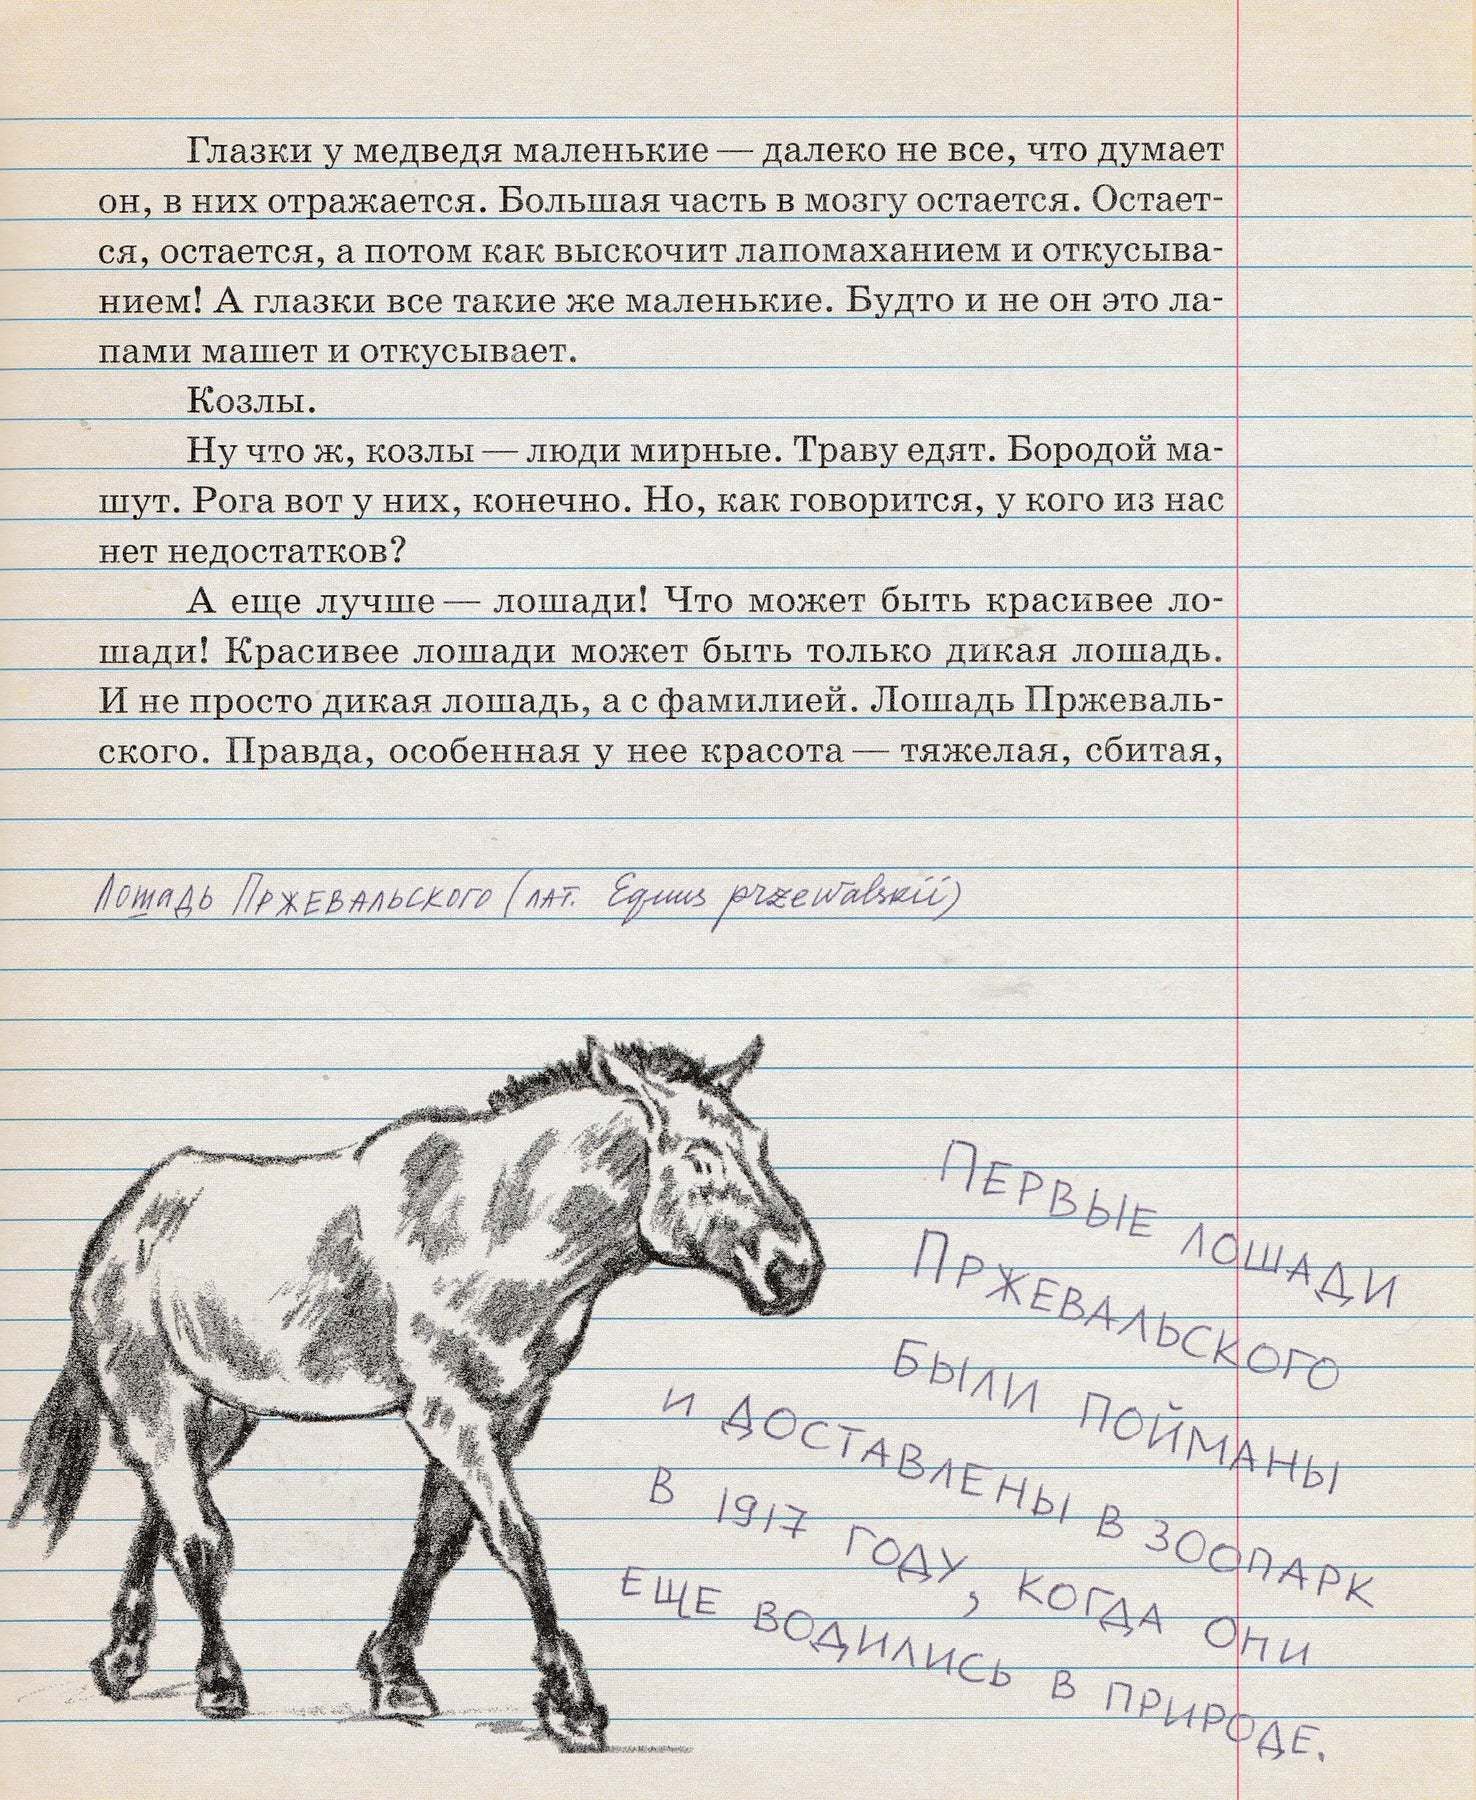 Глазки у медведя маленькие — далеко не все, что думает
он, в них отражается. Большая часть в мозгу остается. Остает-
ся, остается, а потом как выскочит лапомаханием и откусыва-
нием! А глазки все такие же маленькие. Будто и не он это ла-
пами машет и откусывает.
Козлы.
Ну что ж, козлы — люди мирные. Траву едят. Бородой ма-
шут. Рога вот у них, конечно. Но, как говорится, у кого из нас
нет недостатков?
А еще лучше — лошади! Что может быть красивее ло-
шади! Красивее лошади может быть только дикая лошадь.
И не просто дикая лошадь, а с фамилией. Лошадь Пржеваль-
ского. Правда, особенная у нее красота — тяжелая, сбитая,
Лошадь Пржевальского (лат. Equus przewalskii)
Первые лошади
Пржевальского
были пойманы
и доставлены в зоопарк
в 1917 году, когда они
еще водились в природе.